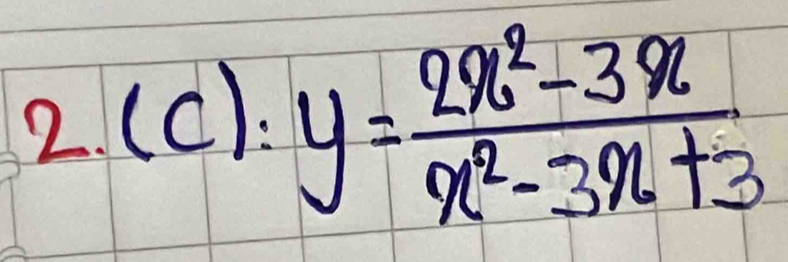 2. (C): y = \frac{2x^2 - 3x}{x^2 - 3x + 3}